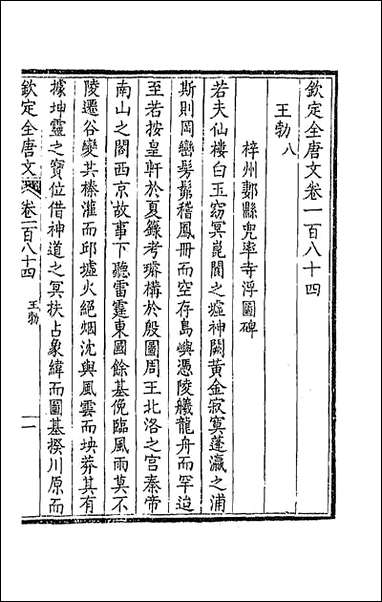 欽定全唐文卷一百八十四
王勃八
梓州郪縣兜率寺浮圖碑
若夫仙樓白玉窈冥崑閬之墟神闕黃金寂寞蓬瀛之浦
斯則岡巒髣髴稽鳳冊而空存島嶼憑陵艤龍舟而罕迨
至若按皇軒於夏籙考瓊構於殷圖周王北洛之宮秦帝
南山之闕西京故事下聽雷霆東國餘基俛臨風雨莫不
陵遷谷變共榛灌而邱墟火絕烟沈與風雲而坱莽其有
據坤靈之寶位借神道之冥扶占象緯而圖基揆川原而
欽定全唐文 卷一百八十四 王勃 一